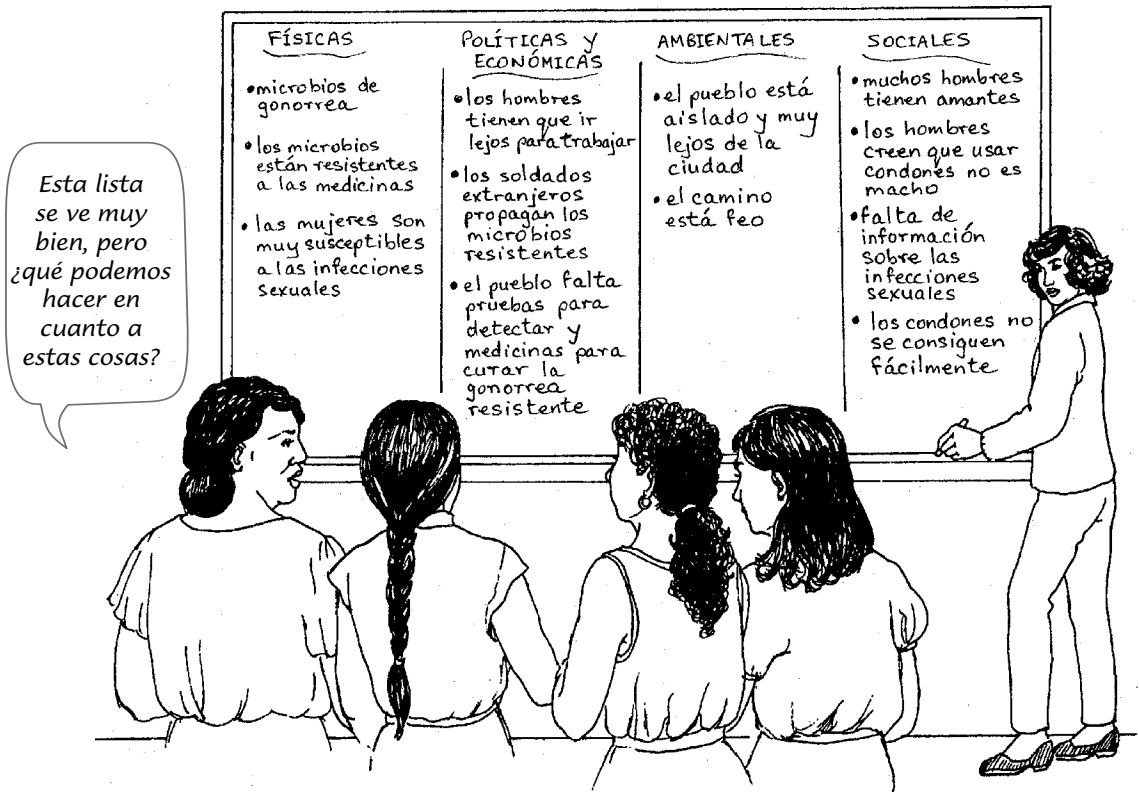 Esta lista
se ve muy
bien, pero
¿qué podemos
hacer en
cuanto a
estas cosas?
FÍSICAS
•microbios de
gonorrea
•los microbios
están resistentes
a las medicinas
•las mujeres son
muy susceptibles
a las infecciones
sexuales
POLÍTICAS Y
ECONÓMICAS
•los hombres
tienen que ir
lejos para trabajar
•los soldados
extranjeros
propagan los
microbios
resistentes
•el pueblo falta
pruebas para
detectar y
medicinas para
curar la
gonorrea
resistente
AMBIENTALES
•el pueblo está
aislado y muy
lejos de la
ciudad
•el camino
está feo
SOCIALES
•muchos hombres
tienen amantes
•los hombres
creen que usar
condones no es
macho
•falta de
información
sobre las
infecciones
sexuales
•los condones no
se consiguen
fácilmente